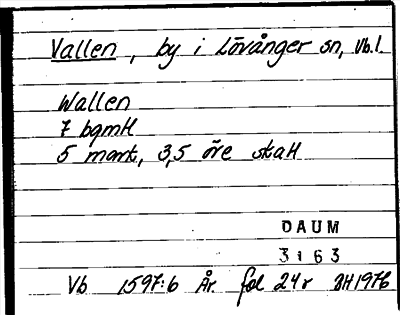 Vallen, by i Lövånger sn, Vb.l.
Wallen
7 bgmH
5 mark, 3,5 öre skatt
DAUM
3163
Vb 1597:6 År. fol 24r BH1976